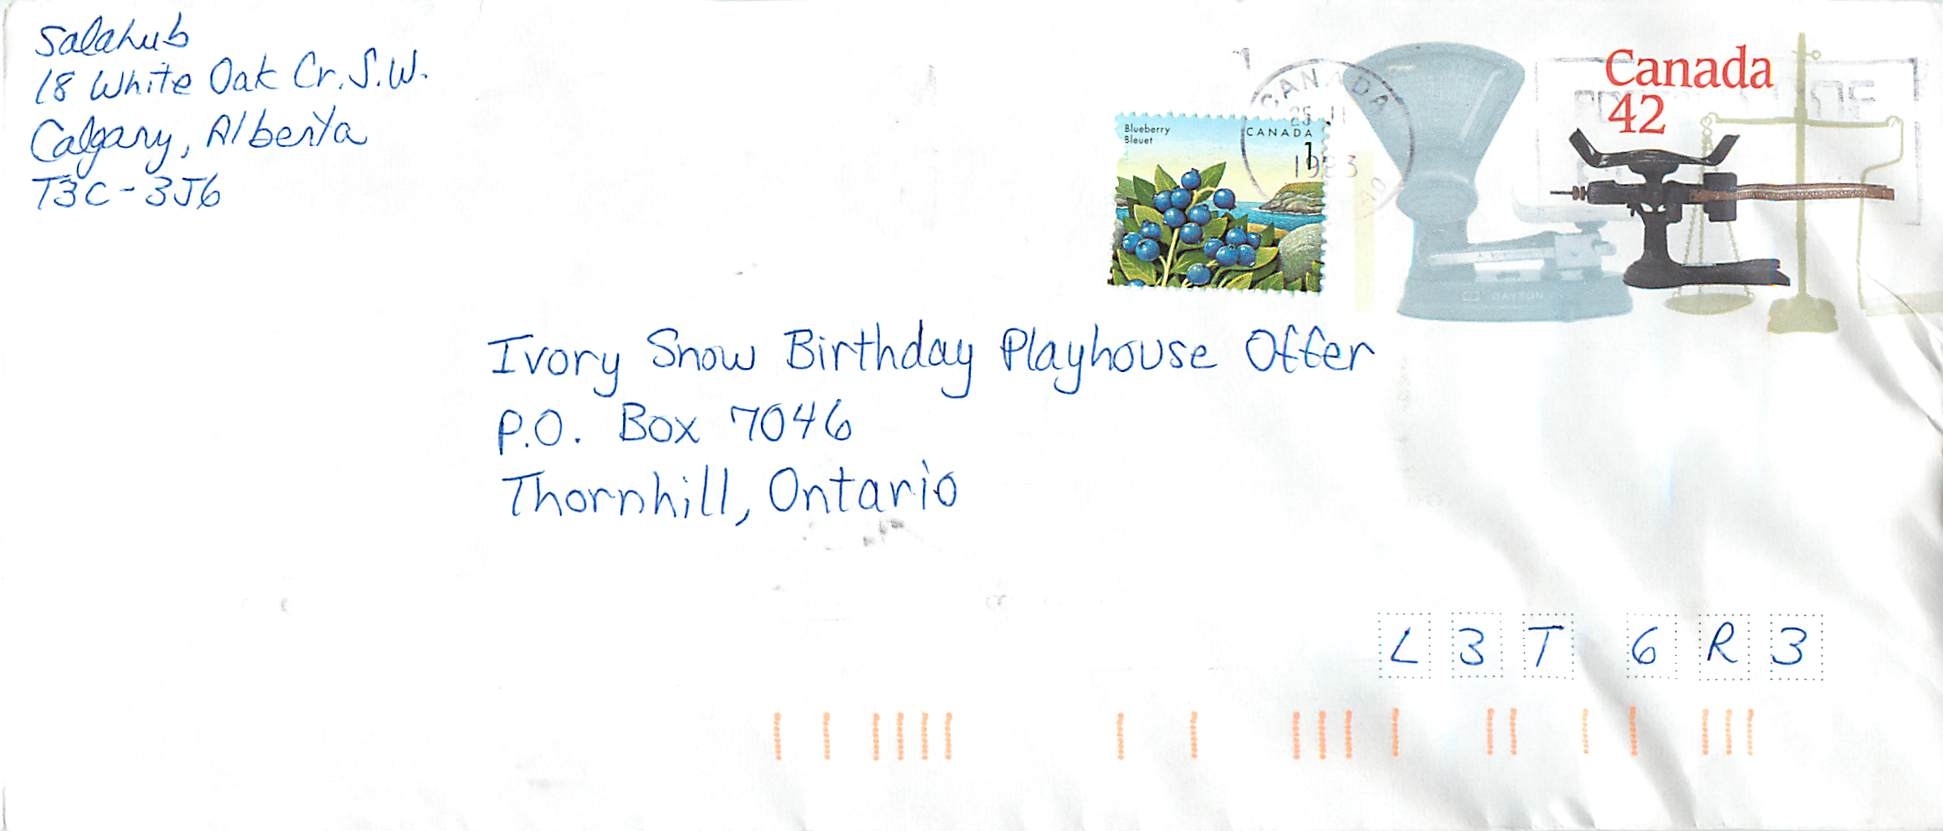 Salahub
18 White Oak Cr. S.W.
Calgary, Alberta
T3C-3J6
Blueberry
Bleuet
CANADA
1
CANADA
Canada
42
DAYTON
Ivory Snow Birthday Playhouse Offer
P.O. Box 7046
Thornhill, Ontario
L3T 6R3